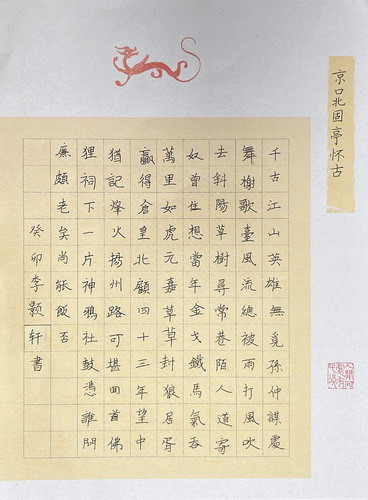 京口北固亭怀古
千古江山英雄無覓孫仲謀處
舞榭歌臺風流總被雨打風吹
去斜陽草樹尋常巷陌人道寄
奴曾住想當年金戈鐵馬氣吞
萬里如虎元嘉草草封狼居胥
贏得倉皇北顧四十三年望中
猶記烽火揚州路可堪回首佛
狸祠下一片神鴉社鼓憑誰問
廉頗老矣尚能飯否
癸卯李轩書